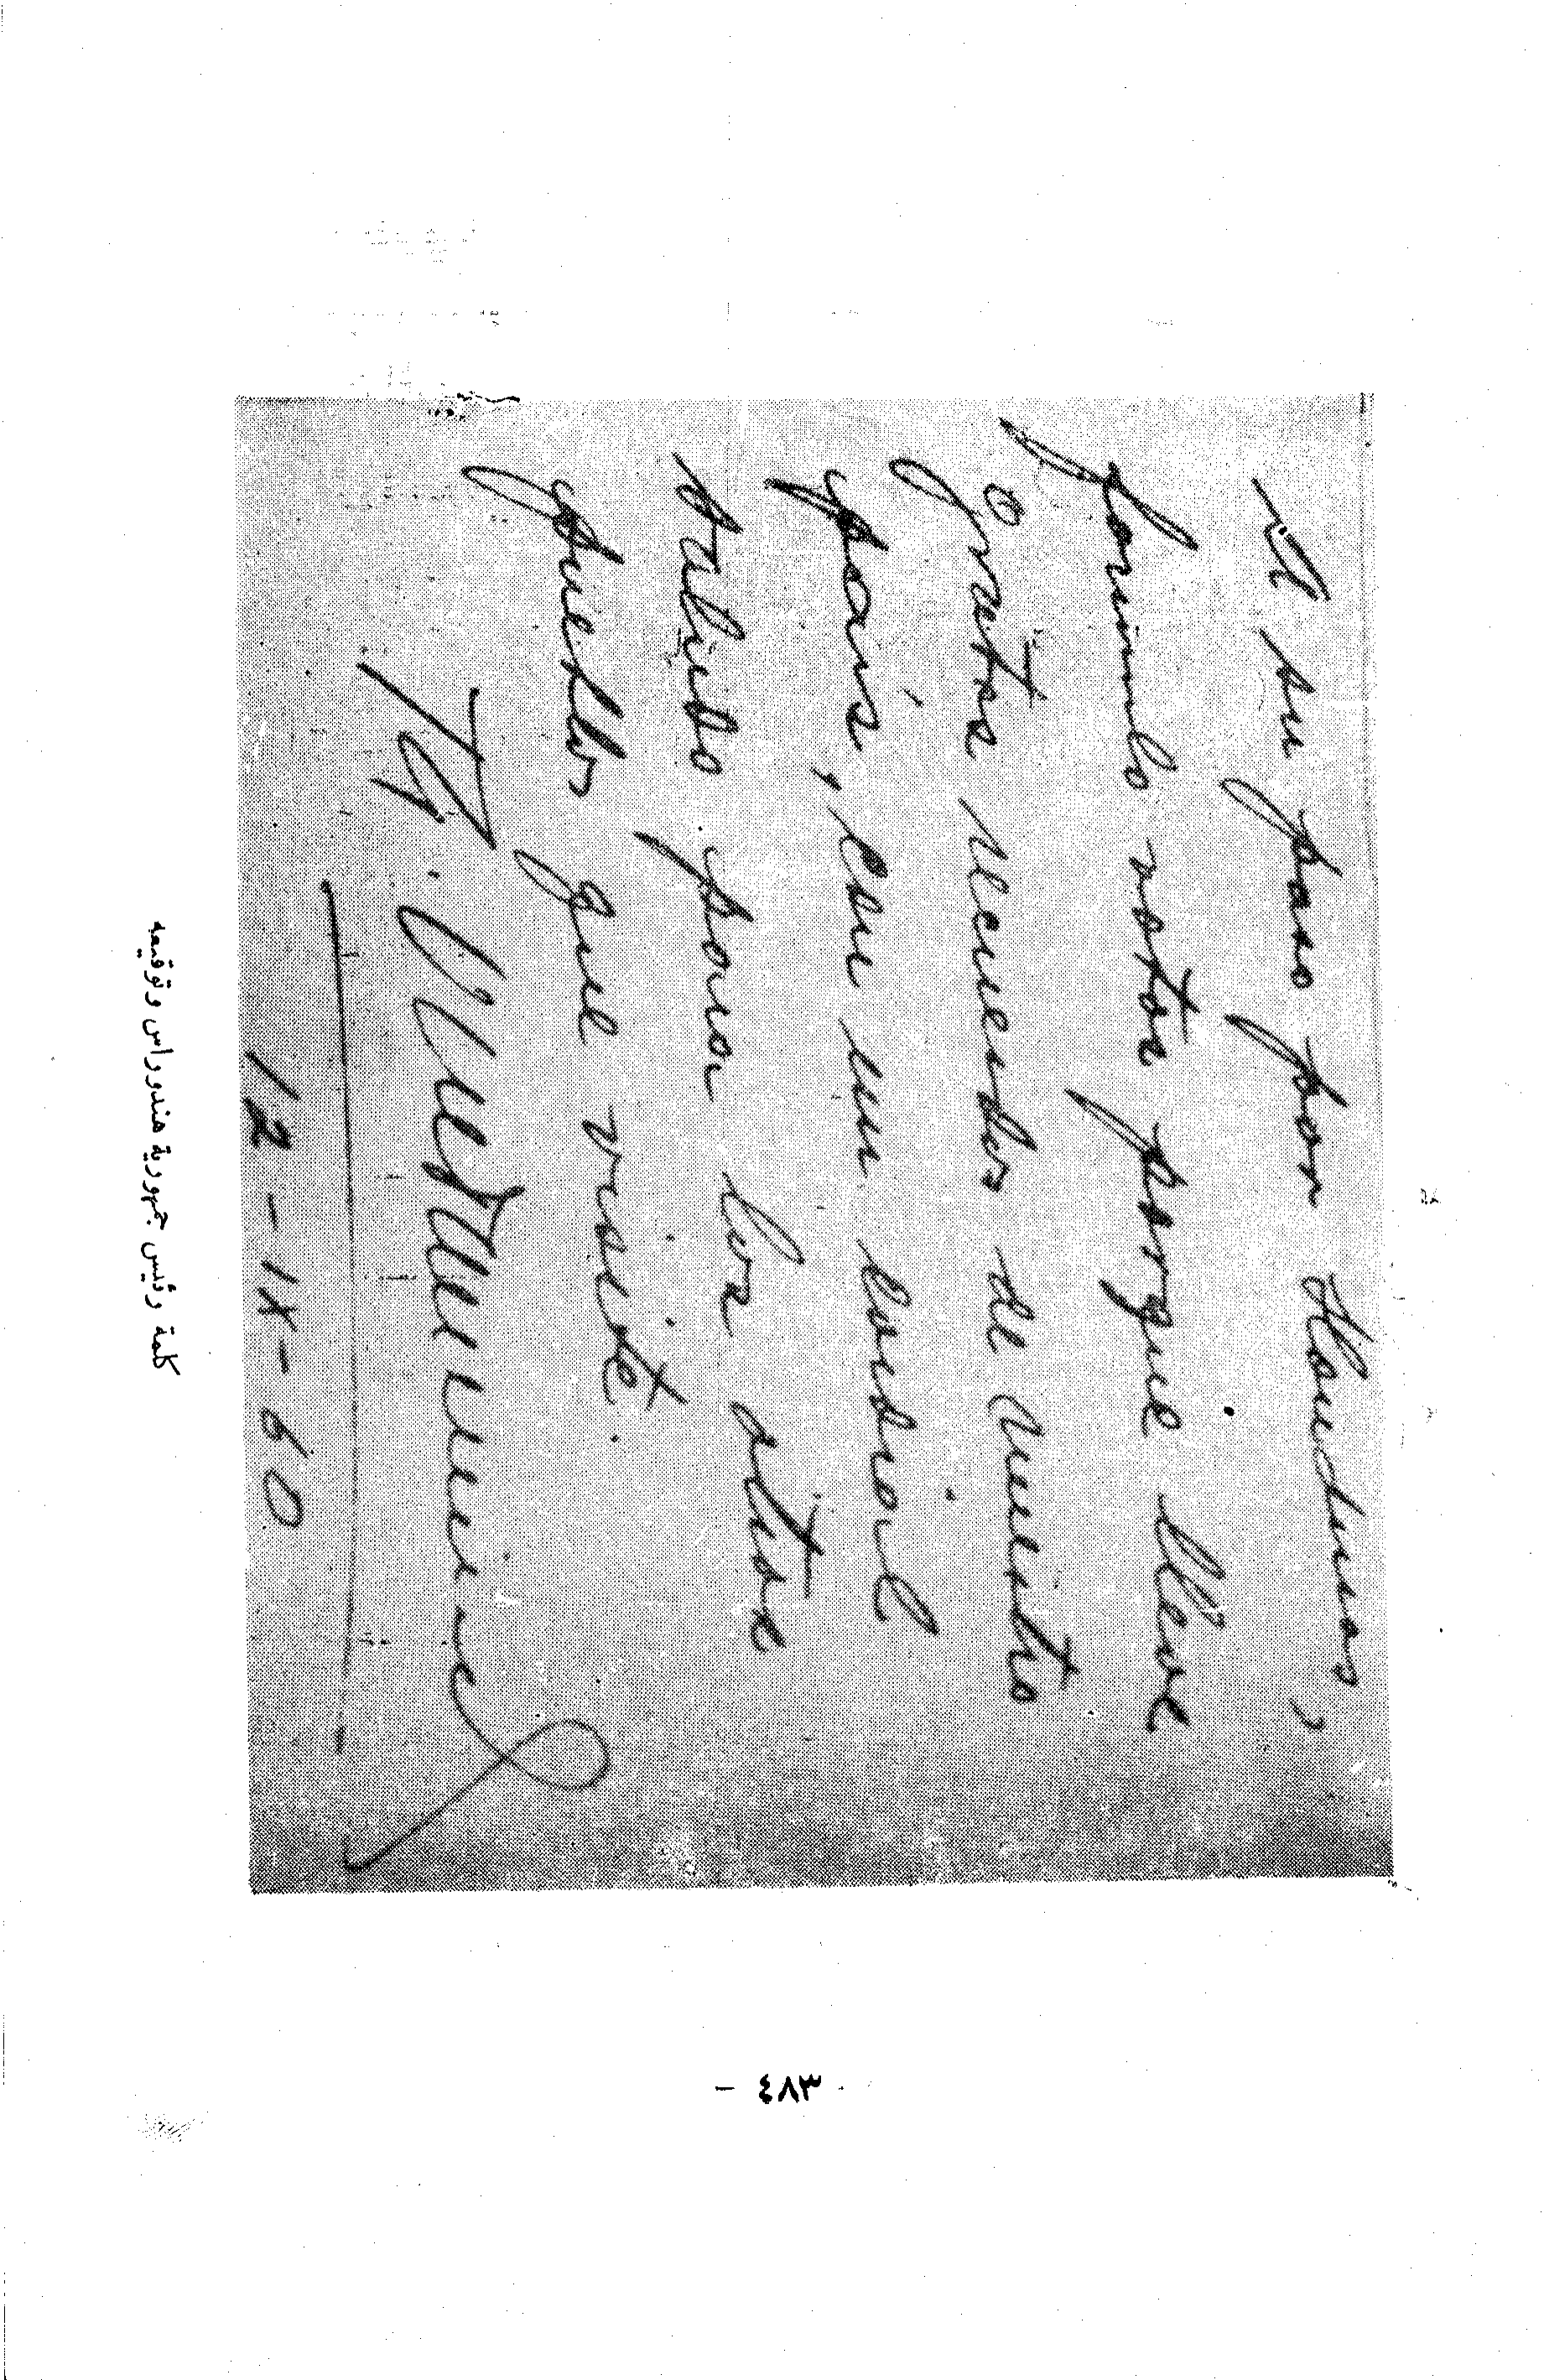 A su paso por Honduras,
formulo votos porque lleve
gratos recuerdos de nuestro
país, con un cordial
saludo para los otros
pueblos que visite.
12 - IX - 60
كلمة رئيس جمهورية هندوراس وتوقيعه
٤٨٣ -